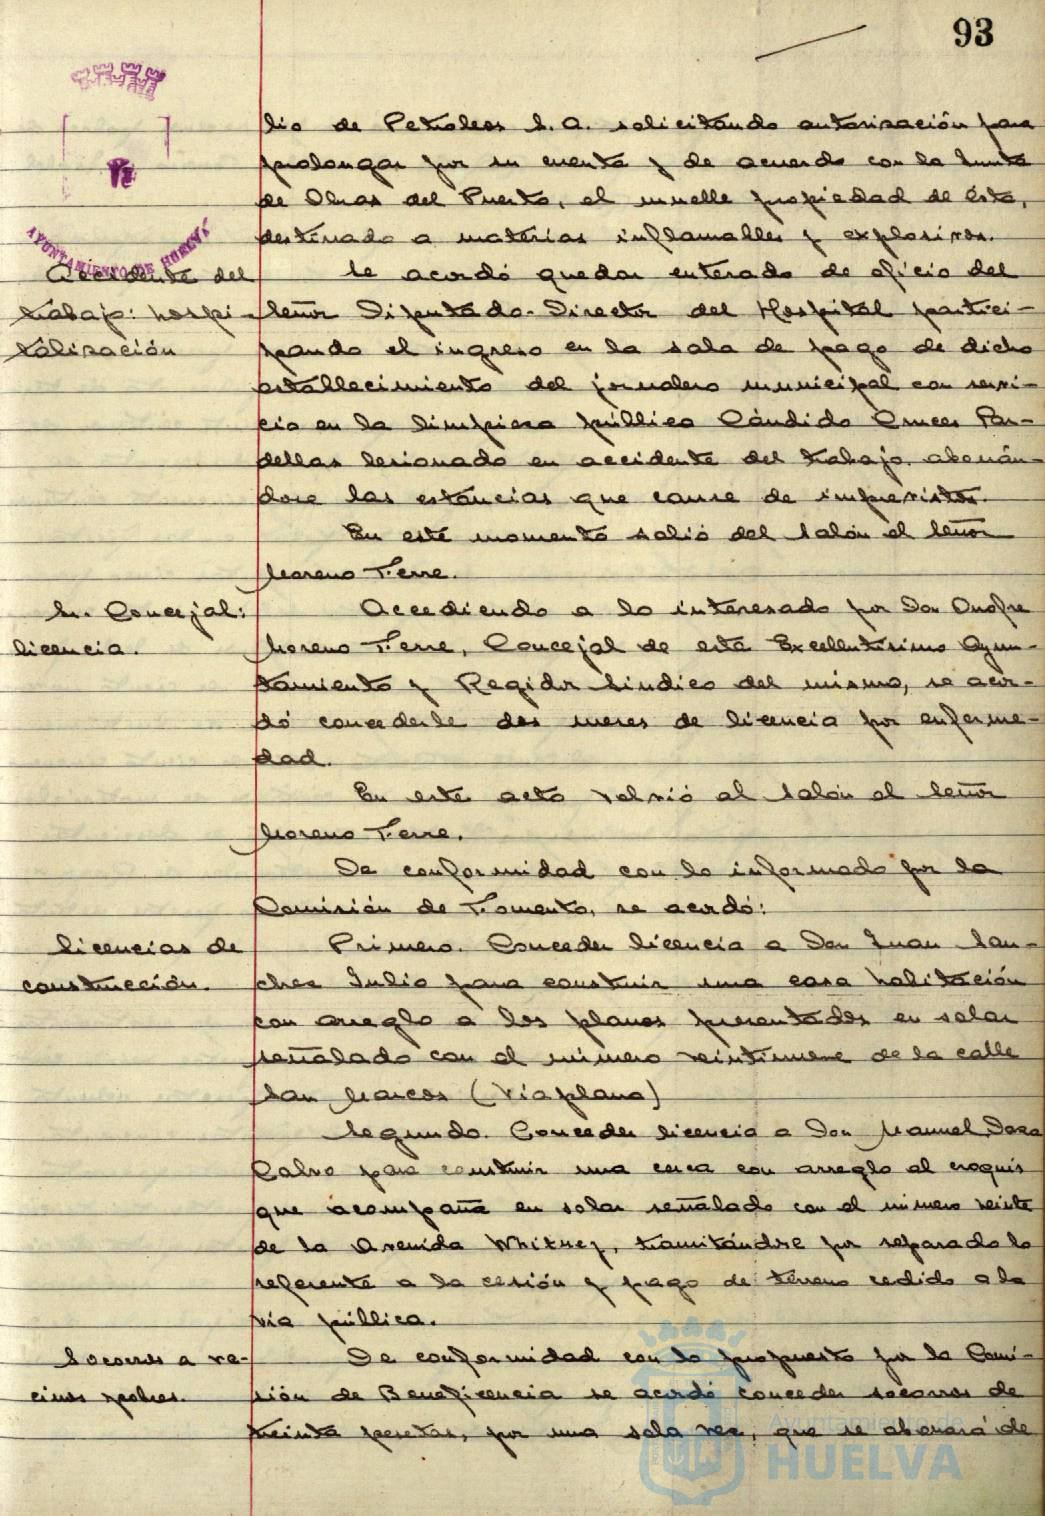 93
lio de Petroleos S. A. solicitando autorización para
prolongar por su cuenta y de acuerdo con la Junta
de Obras del Puerto, el muelle propiedad de ésta,
destinado a materias inflamables y explosivos.
AYUNTAMIENTO DE HUELVA
Accidente del
trabajo: hospi-
talización
Se acordó quedar enterado de oficio del
Señor Diputado-Director del Hospital partici-
pando el ingreso en la sala de pago de dicho
establecimiento del jornalero municipal con servi-
cio en la limpieza pública Cándido Cruces Par-
dellas lesionado en accidente del trabajo, abonán-
dose las estancias que cause de imprevistos.
En este momento salió del Salón el Señor
Moreno Ferre.
Sr. Concejal:
licencia.
Accediendo a lo interesado por Don Onofre
Moreno Ferre, Concejal de este Excelentísimo Ayun-
tamiento y Regidor Síndico del mismo, se acor-
dó concederle dos meses de licencia por enferme-
dad.
En este acto volvió al Salón el Señor
Moreno Ferre.
De conformidad con lo informado por la
Comisión de Fomento, se acordó:
Licencias de
construcción.
Primero. Conceder licencia a Don Juan San-
chez Julio para construir una casa habitación
con arreglo a los planos presentados en solar
señalado con el número veintinueve de la calle
San Marcos (Viaplana)
Segundo. Conceder licencia a Don Manuel
Calvo para construir una cerca con arreglo al croquis
que acompaña en solar señalado con el número veinte
de la Avenida Whitney, tramitándose por separado lo
referente a la cesión y pago de terreno cedido a la
vía pública.
Socorros a ve-
cinos pobres.
De conformidad con lo propuesto por la Comi-
sión de Beneficencia se acordó conceder socorros de
treinta pesetas, por una sola vez, que se abonará de
Ayuntamiento de
HUELVA